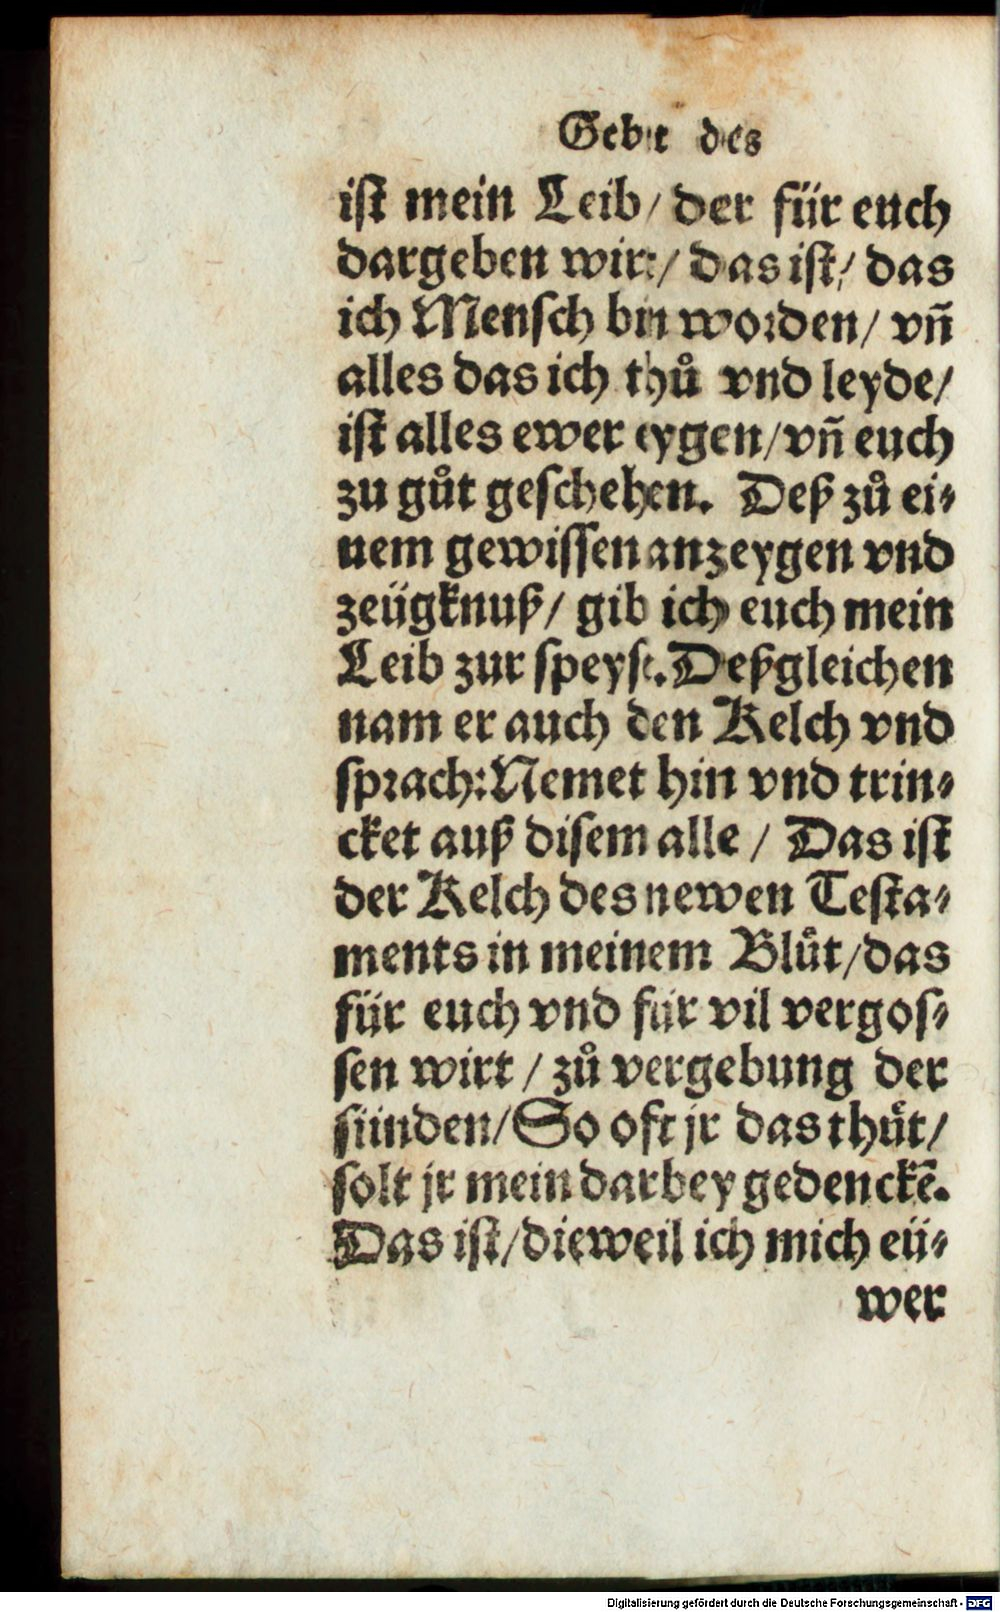 Gebet des
ist mein Leib/ der für euch
dargeben wirt/ das ist/ das
ich Mensch bin worden/ vñ
alles das ich thů vnd leyde/
ist alles ewer eygen/ vñ euch
zu gůt geschehen. Deß zů ei⸗
nem gewissen anzeygen vnd
zeügknuß/ gib ich euch mein
Leib zur speyse. Deßgleichen
nam er auch den Kelch vnd
sprach: Nemet hin vnd trin⸗
cket auß disem alle / Das ist
der Kelch des newen Testa⸗
ments in meinem Blůt/ das
für euch vnd für vil vergos⸗
sen wirt / zů vergebung der
sünden/ So oft jr das thůt/
solt jr mein darbey gedenckē.
Das ist/ dieweil ich mich eü⸗
wer
Digitalisierung gefördert durch die Deutsche Forschungsgemeinschaft - DFG